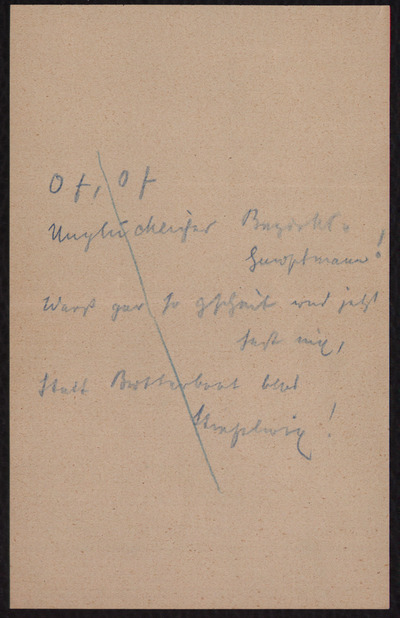 Oh, Oh
Unglücklicher Bezirks-
hauptmann!
Warst gar so gscheit und jetzt
hast nix,
Statt Butterbrot blos
!